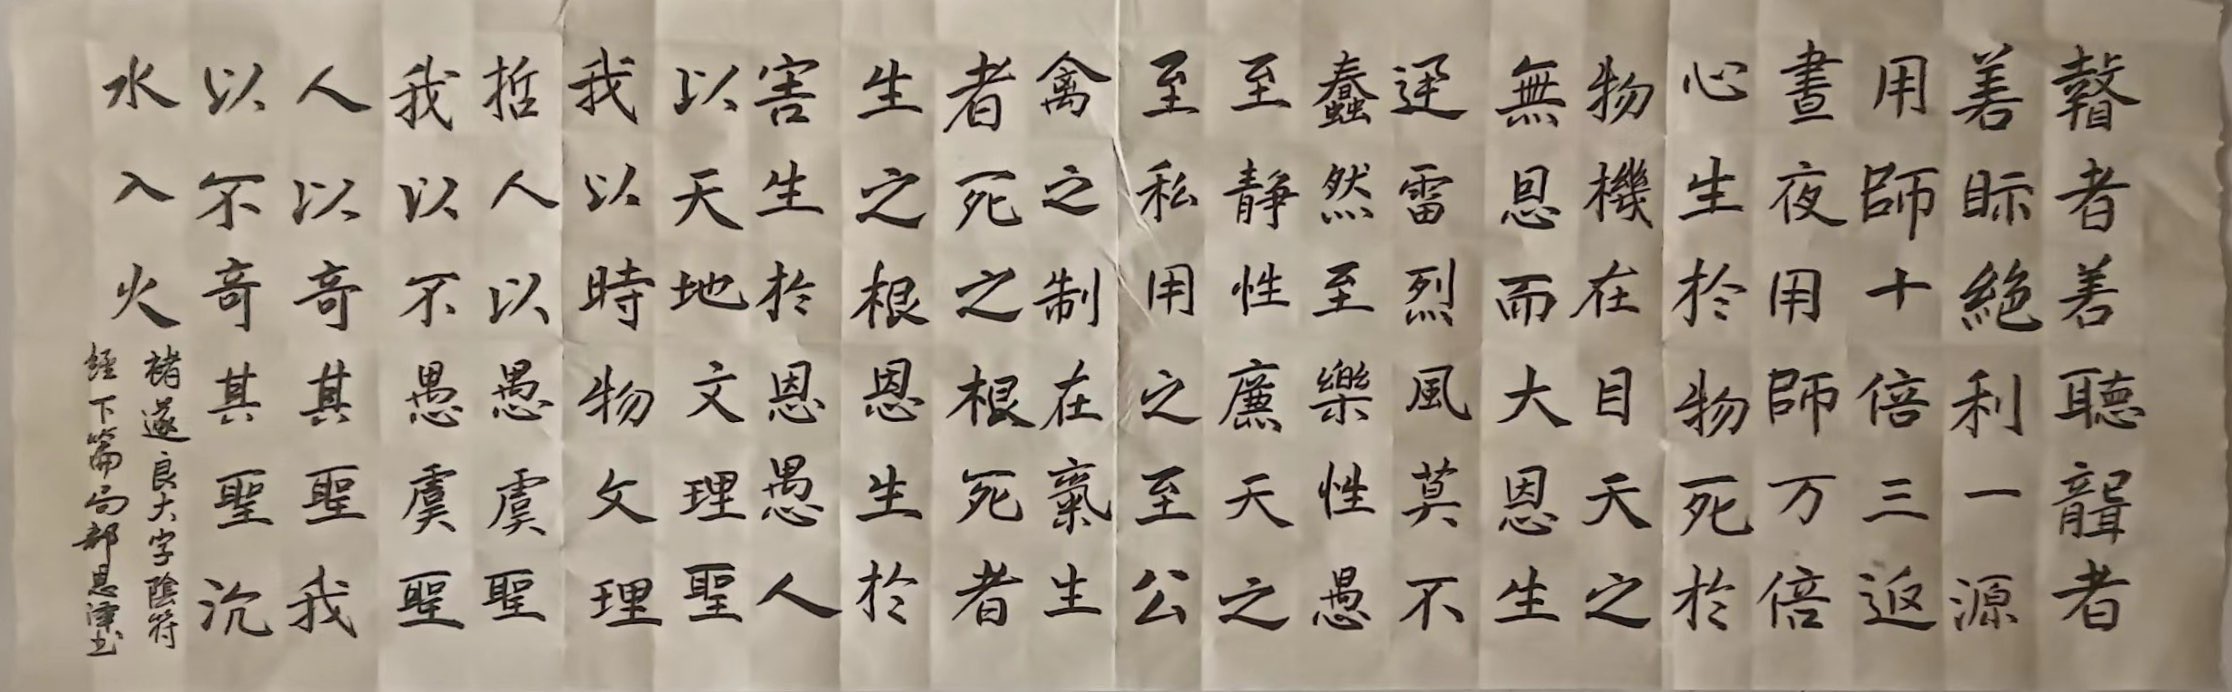 瞽者善聽聾者
善眎絕利一源
用師十倍三返
晝夜用師万倍
心生於物死於
物機在目天之
無恩而大恩生
迅雷烈風莫不
蠢然至樂性愚
至靜性廉天之
至私用之至公
禽之制在氣生
者死之根死者
生之根恩生於
害生於恩愚人
以天地文理聖
我以時物文理
哲人以愚虞聖
我以不愚虞聖
人以奇其聖我
以不奇其聖沉
水入火
褚遂良大字陰符
經下篇句恩澤书